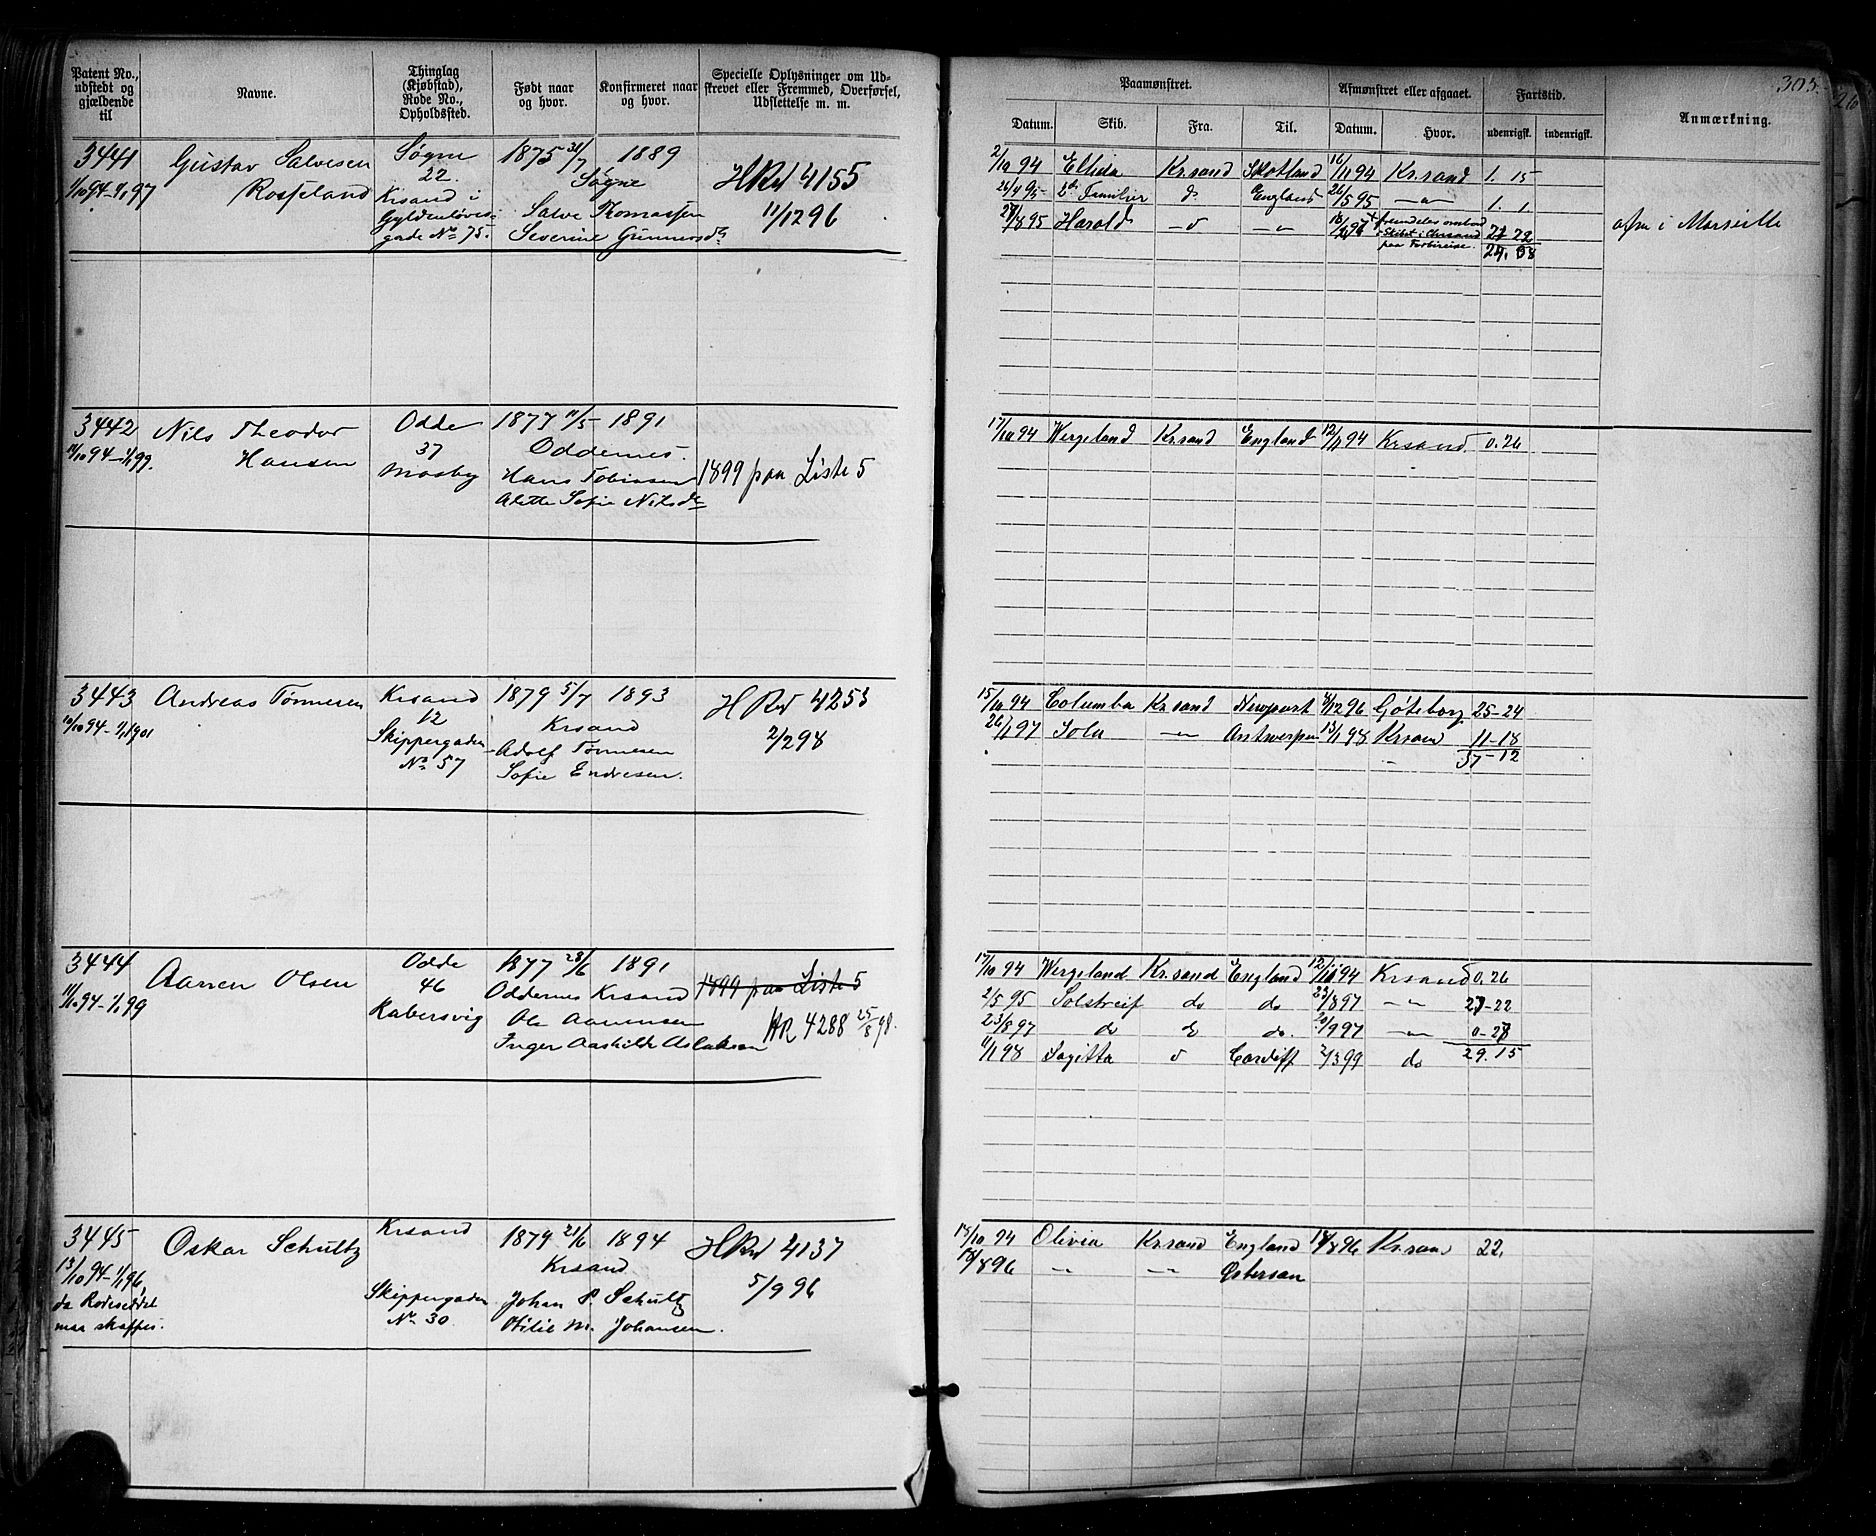 305.
26
Patent No., udstedt og gjældende til
Navne.
Thinglag (Kjøbstad), Rode No., Opholdssted.
Født naar og hvor.
Konfirmeret naar og hvor.
Specielle Oplysninger om Udskrevet eller Fremmed, Overførsel, Udslettelse m. m.
Paamønstret.
Afmønstret eller afgaaet.
Fartstid.
Anmærkning.
Datum. Skib. Fra. Til. Datum. Hvor. udenrigsk. indenrigsk.
3441 Gustav Salvesen Søgne 1875 31/7 1889
1/10 94-1/1 97 Rosseland 22 Søgne H Rul 4155
Krsand i Salve Thomassen 11/12 96
Gyldenløves- Severine Gunnersdr
gade No 75.
2/10 94 Ellida Kr.sand Skotland 16/11 94 Kr.sand 1. 15
26/4 95 2de Familier d England 26/5 95 — " — 1. 1.
27/8 95 Harald — " — — " — Skibet i Chrsand 27 22 afm i Marseille
paa Forbireise. 29. 08
3442 Nils Theodor Odde 1877 11/5 1891
10 94-1/1 99. Hansen 37 Oddernes.
Mosby Hans Tobiassen 1899 paa Liste 5
Alette Sofie Nilsdr
17/10 94 Wergeland Kr.sand England 12/11 94 Krsand 0.26
3443 Andreas Tønnesen Krsand 1879 5/7 1893 H Rul 4253
10/10 94-1/1 1901 12 Krsand 2/2 98
Skippergaden Adolf Tønnesen
No 57 Sofie Endresen.
15/10 94 Columba Kr.sand Newport 12 96 Göteborg 25-24
26/1 97 Sola — " — Antwerpen 13/1 98 Krsan 11-18
37-12
3444 Aanen Olsen Odde 1877 28/6 1891 1899 paa Liste 5
11/10 94-1/1 99 46 Oddernes Krsand
Rabersvig Ole Aanensen HR 4288 25/8 98.
Inger Aashilde Aslaksen
17/10 94 Wergeland Kr.sand England 12/11 94 Krsand 0.26
2/5 95 Solstreif do do 23/8 97 — " — 27-22
23/8 97 do do do. 20/9 97 — " — 0-27
11/1 98 Sagitta d Cardiff 2/3 99 do 29.15
3445 Oskar Schultz Krsand 1879 21/6 1894 H Rul 4137
13/10 94-1/1 96, Krsand 5/9 96
da Rodeseddel Skippergaden Johan P. Schultz
maa skaffes. No 30 Otilie M. Johansen.
18/10 94 Olivia Kr.sand England 18/8 96 Krsan 22.
18/8 96 — " — — " — Østersøn